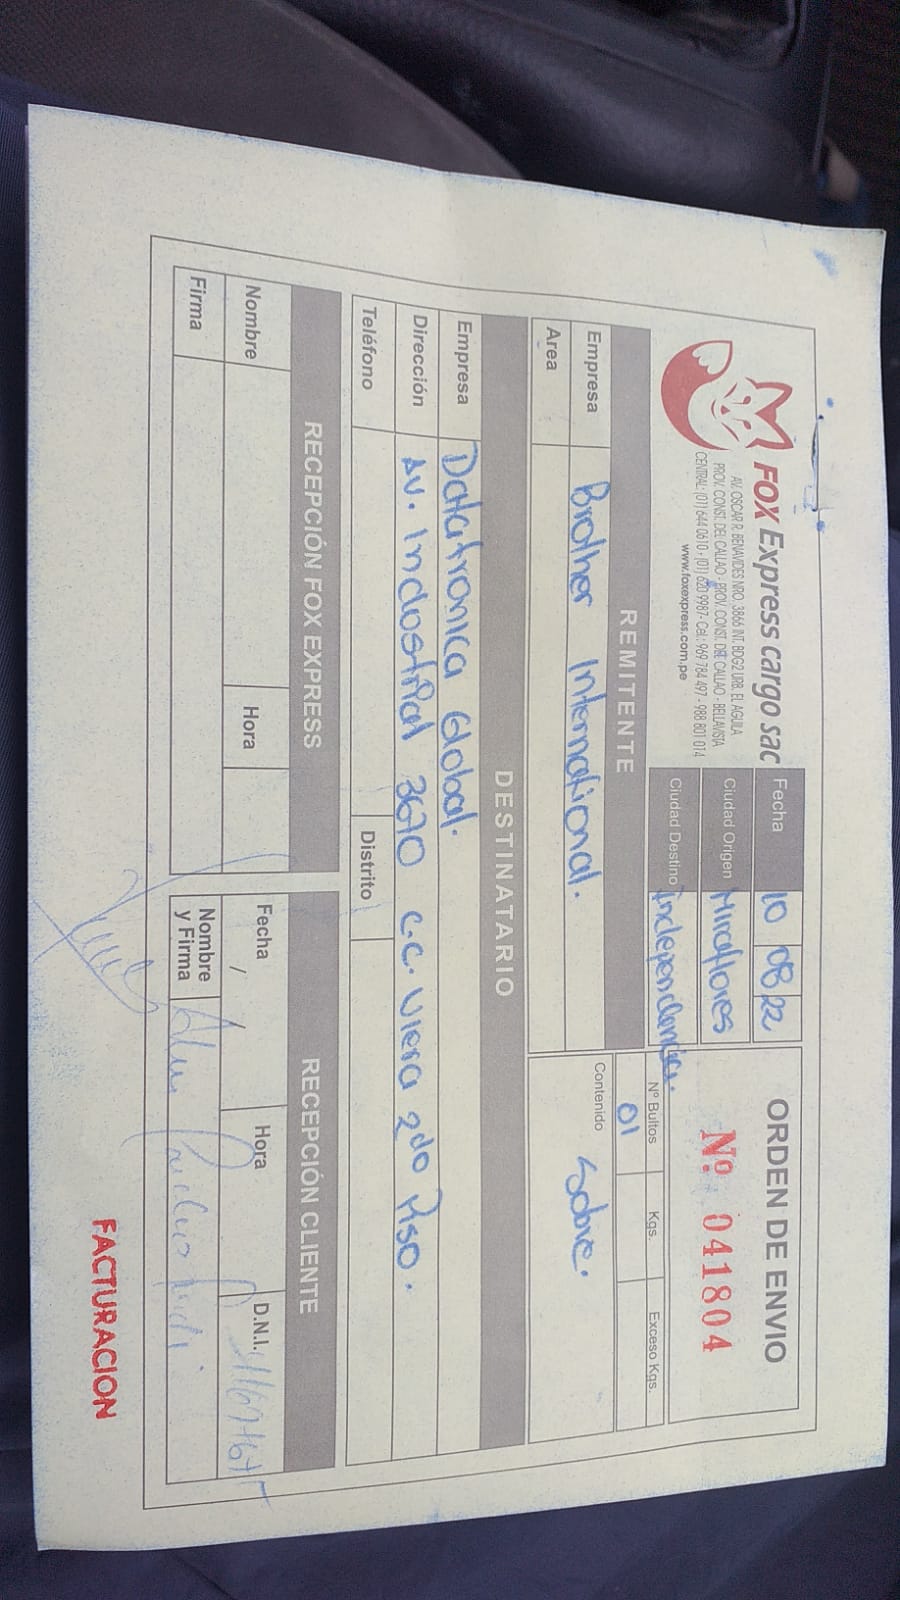 FOX Express cargo sac
AV. OSCAR R. BENAVIDES NRO. 3866 INT. BDG2 URB. EL AGUILA
PROV. CONST. DEL CALLAO - PROV. CONST. DEL CALLAO - BELLAVISTA
CENTRAL: (01) 644 0610 - (01) 620 9987 - Cel.: 969 784 497 - 988 801 014
www.foxexpress.com.pe
Fecha 10 08 22
Ciudad Origen Miraflores
Ciudad Destino Independencia.
ORDEN DE ENVIO
Nº 041804
REMITENTE
Empresa Brother International.
Area
Nº Bultos Kgs. Exceso Kgs.
01
Contenido Sobre.
DESTINATARIO
Empresa Datatronica Global.
Dirección Av. Industrial 3670 C.C. Viera 2do Piso.
Teléfono Distrito
RECEPCIÓN FOX EXPRESS
Nombre Hora
Firma
RECEPCIÓN CLIENTE
Fecha / / Hora D.N.I.
Nombre y Firma
FACTURACION